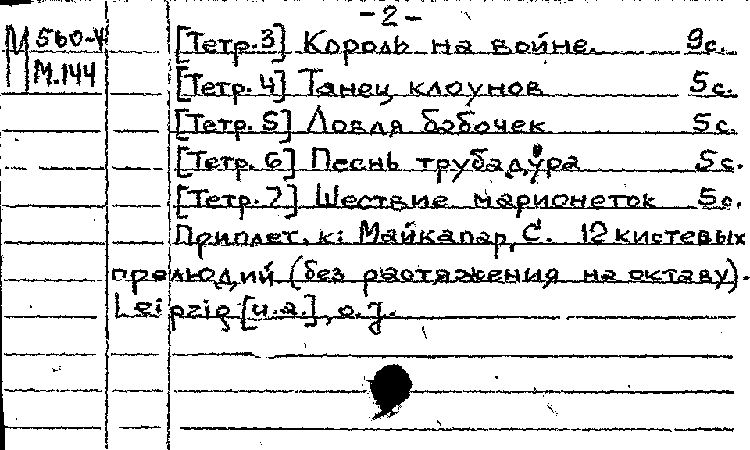 - 2 -
М 560-4 [Тетр.3] Король на войне. 9с.
М.144 [Тетр. 4] Танец клоунов 5с.
[Тетр. 5] Ловля бабочек 5с.
[Тетр. 6] Песнь трубадура 5с.
[Тетр. 7] Шествие марионеток 5с.
Приплет. к: Майкапар, С. 12 кистевых
прелюдий (без растяжения на октаву).
Leipzig [u.a.], o.J.